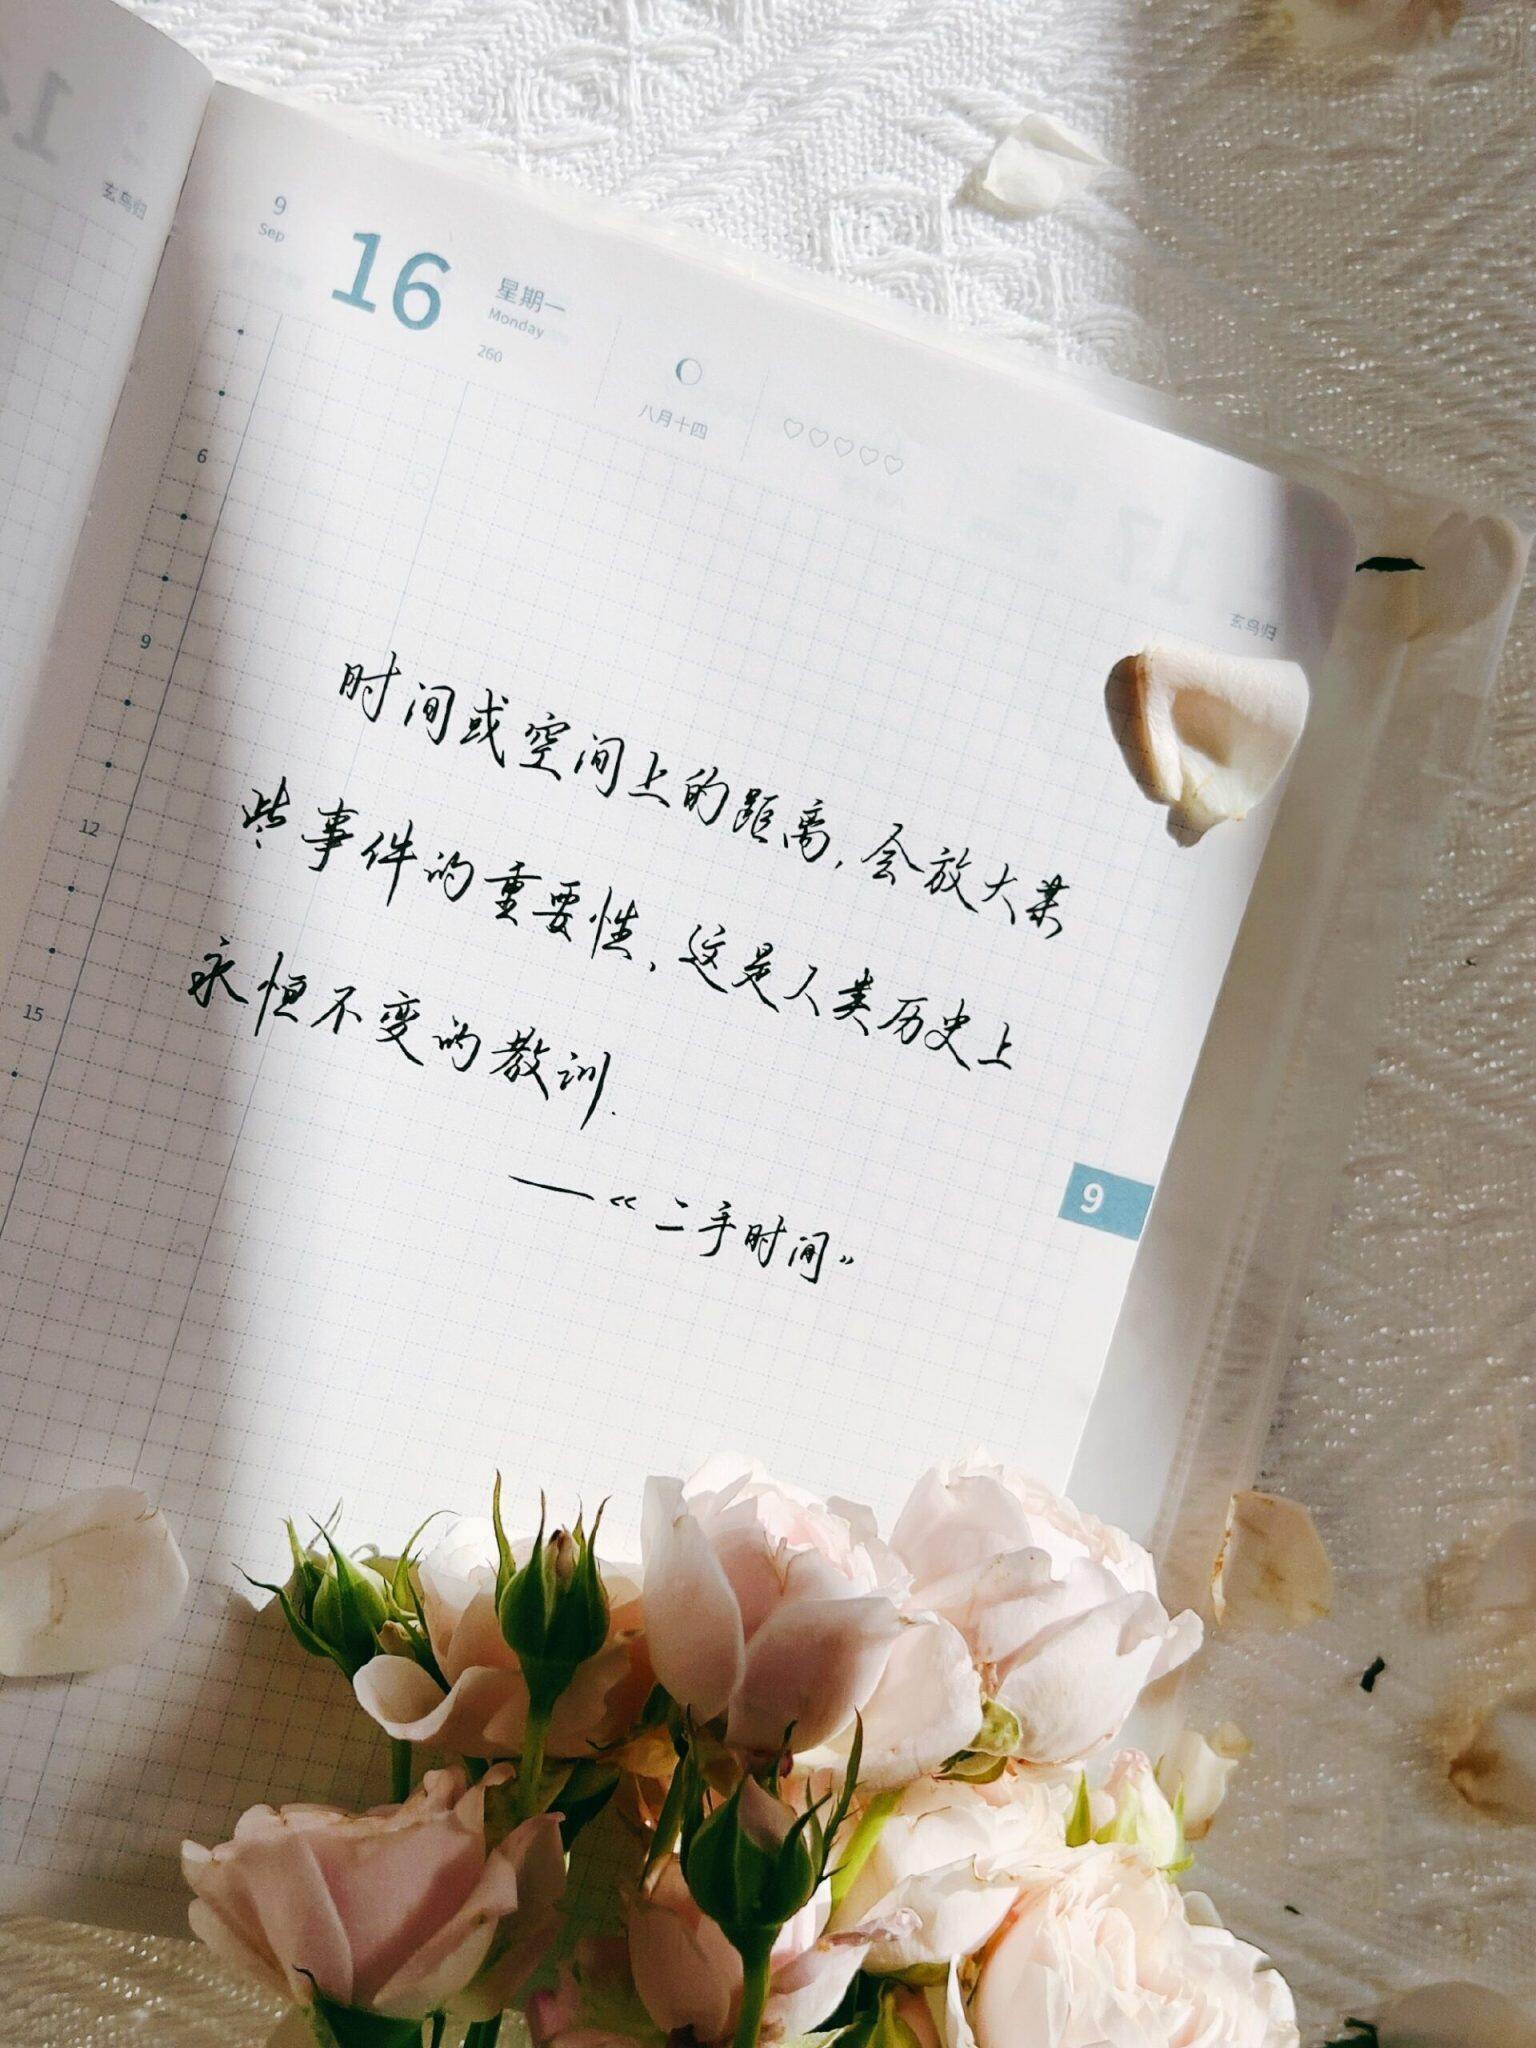 玄鸟归
9
Sep
16
星期一
Monday
260
八月十四
玄鸟归
6
9
12
15
时间或空间上的距离，会放大某
些事件的重要性，这是人类历史上
永恒不变的教训.
——《二手时间》
9